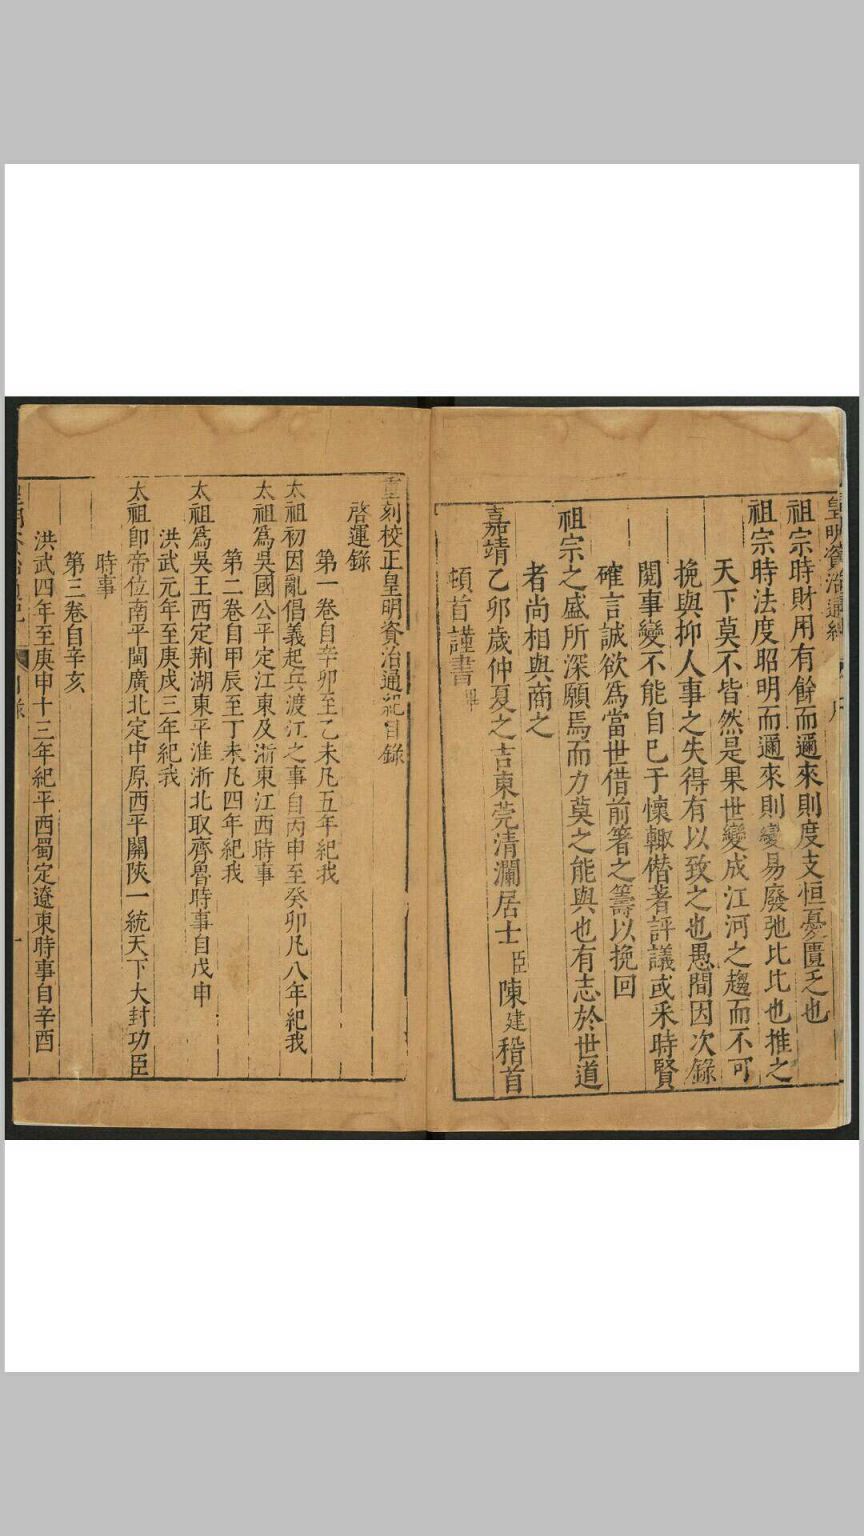 皇明資治通紀 序
祖宗時財用有餘而邇來則度支恒憂匱乏也
祖宗時法度昭明而邇來則變易廢弛比比也推之
天下莫不皆然是果世變成江河之趨而不可
挽與抑人事之失得有以致之也愚間因次錄
閱事變不能自已于懷輙僣著評議或采時賢
確言誠欲爲當世借前箸之籌以挽回
祖宗之盛所深願焉而力莫之能與也有志於世道
者尚相與商之
嘉靖乙卯歲仲夏之吉東莞清瀾居士臣陳建稽首
頓首謹書
重刻校正皇明資治通紀目錄
啓運錄
第一卷自辛卯至乙未凡五年紀我
太祖初因亂倡義起兵渡江之事自丙申至癸卯凡八年紀我
太祖爲吳國公平定江東及浙東江西時事
第二卷自甲辰至丁未凡四年紀我
太祖爲吳王西定荆湖東平淮浙北取齊魯時事自戊申
洪武元年至庚戌三年紀我
太祖卽帝位南平閩廣北定中原西平關陝一統天下大封功臣
時事
第三卷自辛亥
洪武四年至庚申十三年紀平西蜀定遼東時事自辛酉